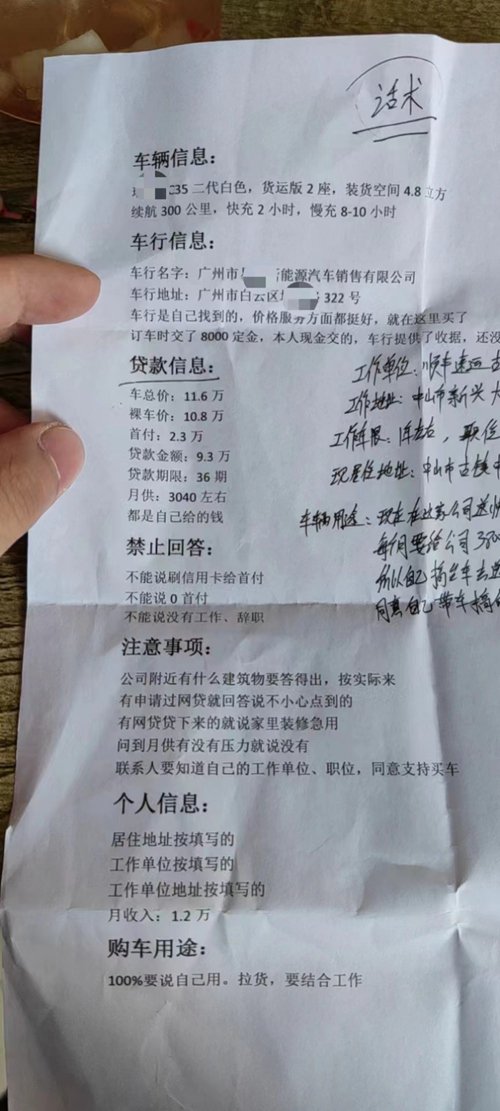 话术
车辆信息:
235 二代白色，货运版 2 座，装货空间 4.8 立方
续航 300 公里，快充 2 小时，慢充 8-10 小时
车行信息:
车行名字：广州市 新能源汽车销售有限公司
车行地址：广州市白云区 322 号
车行是自己找到的，价格服务方面都挺好，就在这里买了
订车时交了 8000 定金，本人现金交的，车行提供了收据，还没
贷款信息:
车总价：11.6 万
裸车价：10.8 万
首付：2.3 万
贷款金额：9.3 万
贷款期限：36 期
月供：3040 左右
都是自己给的钱
工作单位：顺丰速运 古
工作地址：中山市新兴大
工作年限： 左右，职位
现居住地址：中山市古镇
车辆用途：现在在这家公司送
每个月要给公司 380
所以自己搞台车去送
同意自己带车搞
禁止回答:
不能说刷信用卡给首付
不能说 0 首付
不能说没有工作、辞职
注意事项:
公司附近有什么建筑物要答得出，按实际来
有申请过网贷就回答说不小心点到的
有网贷贷下来的就说家里装修急用
问到月供有没有压力就说没有
联系人要知道自己的工作单位、职位，同意支持买车
个人信息:
居住地址按填写的
工作单位按填写的
工作单位地址按填写的
月收入：1.2 万
购车用途:
100%要说自己用。拉货，要结合工作